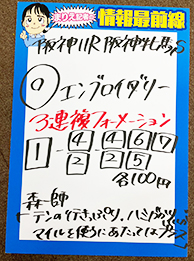 まりえ記者 情報最前線
阪神11R 阪神牝馬S
◎ エンブロイダリー
3連複フォーメーション
1 - 4 2 - 4 6 7 2 5
各100円
森一師
テンの行きっぷり、ハミ
マイルを使うにあたっては